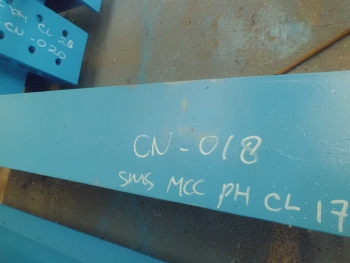 PH CL 2B
CN-020
CN-018
SMS MCC PH CL 17